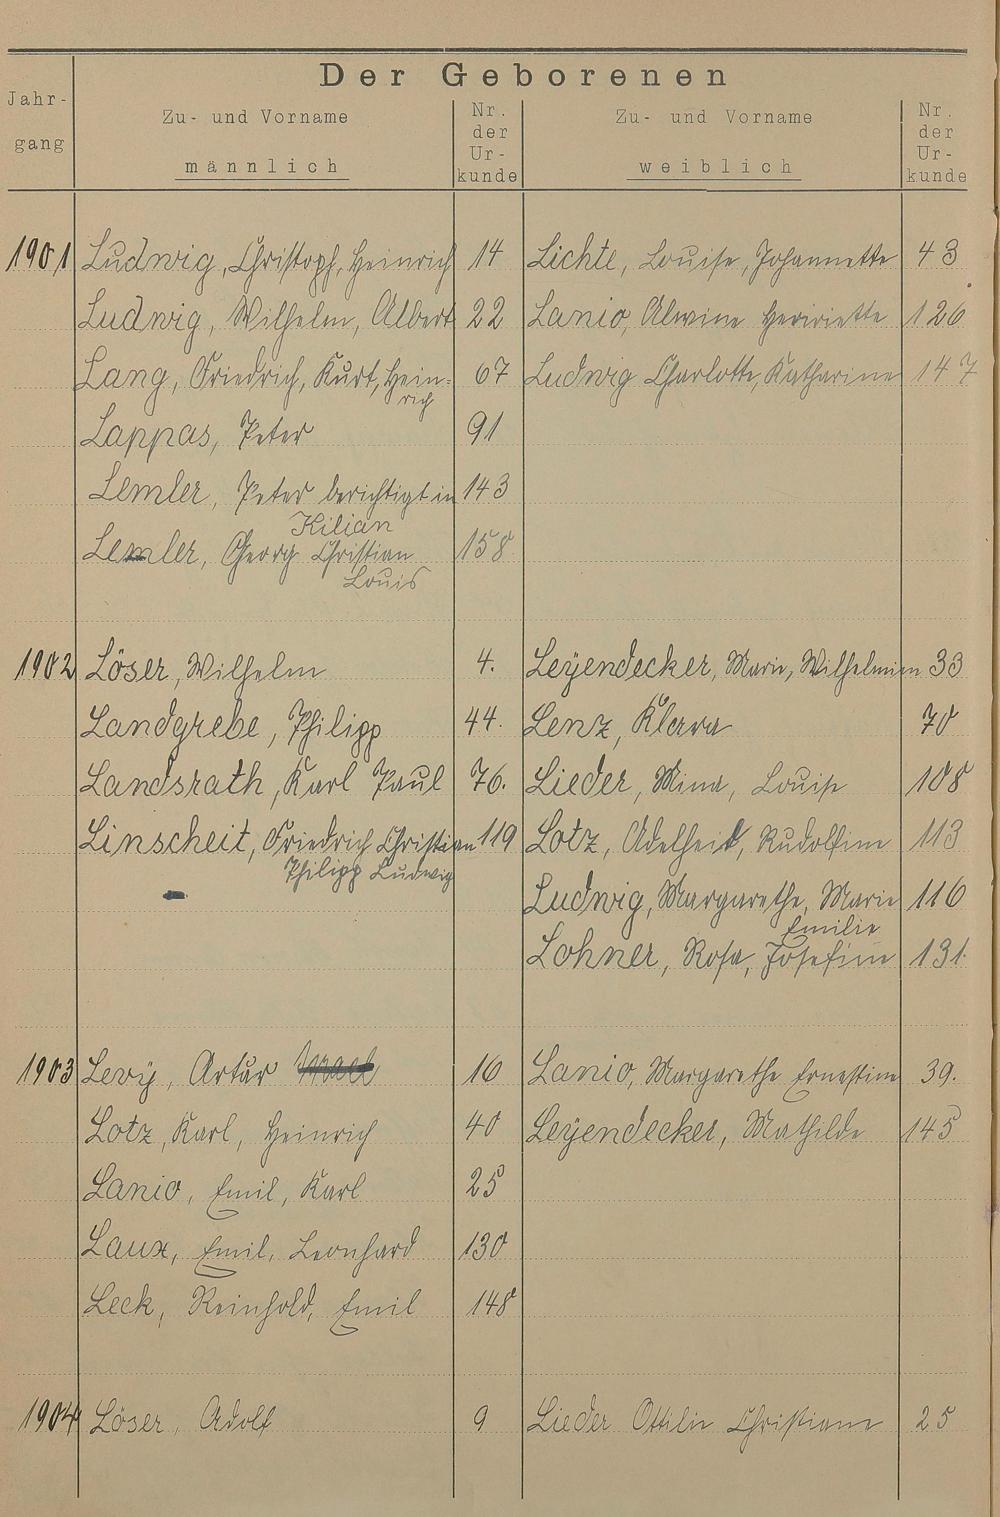 Der Geborenen
Jahr-
gang
Zu- und Vorname
männlich
Nr.
der
Ur-
kunde
Zu- und Vorname
weiblich
Nr.
der
Ur-
kunde
1901 Ludwig, Christoph, Heinrich 14 Lichte, Louise, Johannette 43
Ludwig, Wilhelm, Albert 22 Lanio, Alwine Henriette 126
Lang, Friedrich, Kurt, Hein- 67 Ludwig Charlotte, Katharine 147
rich
Lappas, Peter 91
Lemler, Peter berichtigt in 143
Kilian
Lemler, Georg Christian 158
Louis
1902 Löser, Wilhelm 4. Leÿendecker, Marie, Wilhelmine 33
Landgrebe, Philipp 44. Lenz, Klara 70
Landsrath, Karl Paul 76. Lieder, Mina, Louise 108
Linscheit, Friedrich Christian 119 Lotz, Adelheid, Rudolfine 113
Philipp Ludwig
Ludwig, Margarethe, Marie 116
Emilie
Lohner, Rosa, Josefine 131.
1903 Levÿ, Artur Israel 16 Lanio, Margarethe Ernestine 39.
Lotz, Karl, Heinrich 40 Leÿendecker, Mathilde 145
Lanio, Emil, Karl 25
Laux, Emil, Leonhard 130
Leck, Reinhold, Emil 148
1904 Löser, Adolf 9 Lieder Ottilie Christiane 25